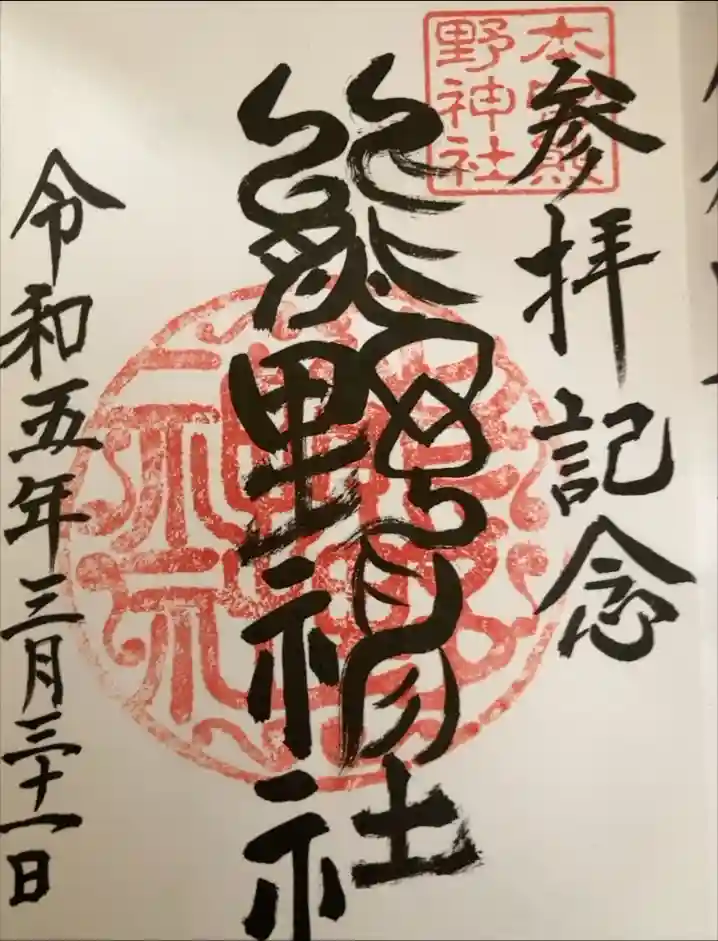 参拝記念
本宮熊
野神社
熊野神社
令和五年三月三十一日